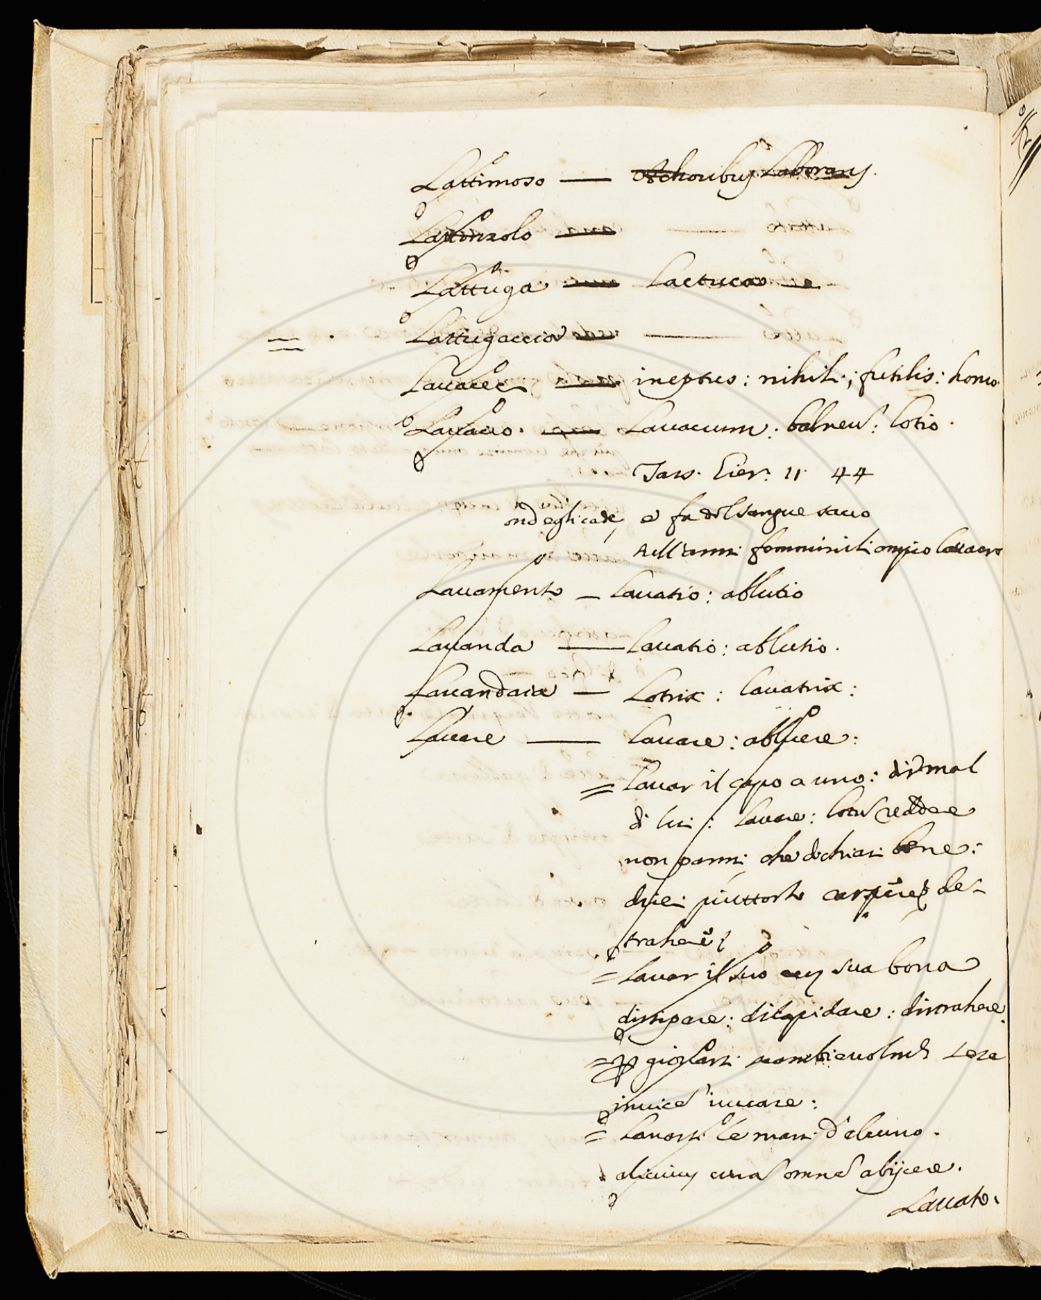 Lattimoso — Achoribus Laborans.
Lattonzolo —
Lattuga — Lactuca
Lattugaccia —
Lavacec — ineptus: nihili; futilis: homo
Lavacro. — Lavacrum: balneũ: lotio.
Tass. Gier. 11 44
ond'egli cade, e fa del sangue sacro
All'armi femminili ampio lavacro
Lavamento — lavatio: ablutio
Lavanda — lavatio: ablutio.
Lavandaia — Lotrix: lavatrix:
Lavare — lavare: abluere:
= lavar il capo a uno: dir mal
di lui: lavare: reddere
non parmi che dichiari bene:
direi piuttosto carpere de-
trahere
= lavar il suo sua bona
dissipare: dilapidare: distrahere
= giovarsi scambievolm.
invicẽ iuvare:
= lavarsi le mani d'alcuno.
alicuius curã omnẽ abijcere.
Lavato.